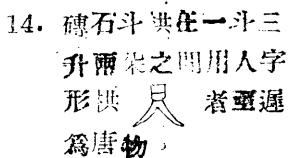 14. 磚石斗拱在一斗三
升兩朶之間用人字
形拱 者至遲
爲唐物